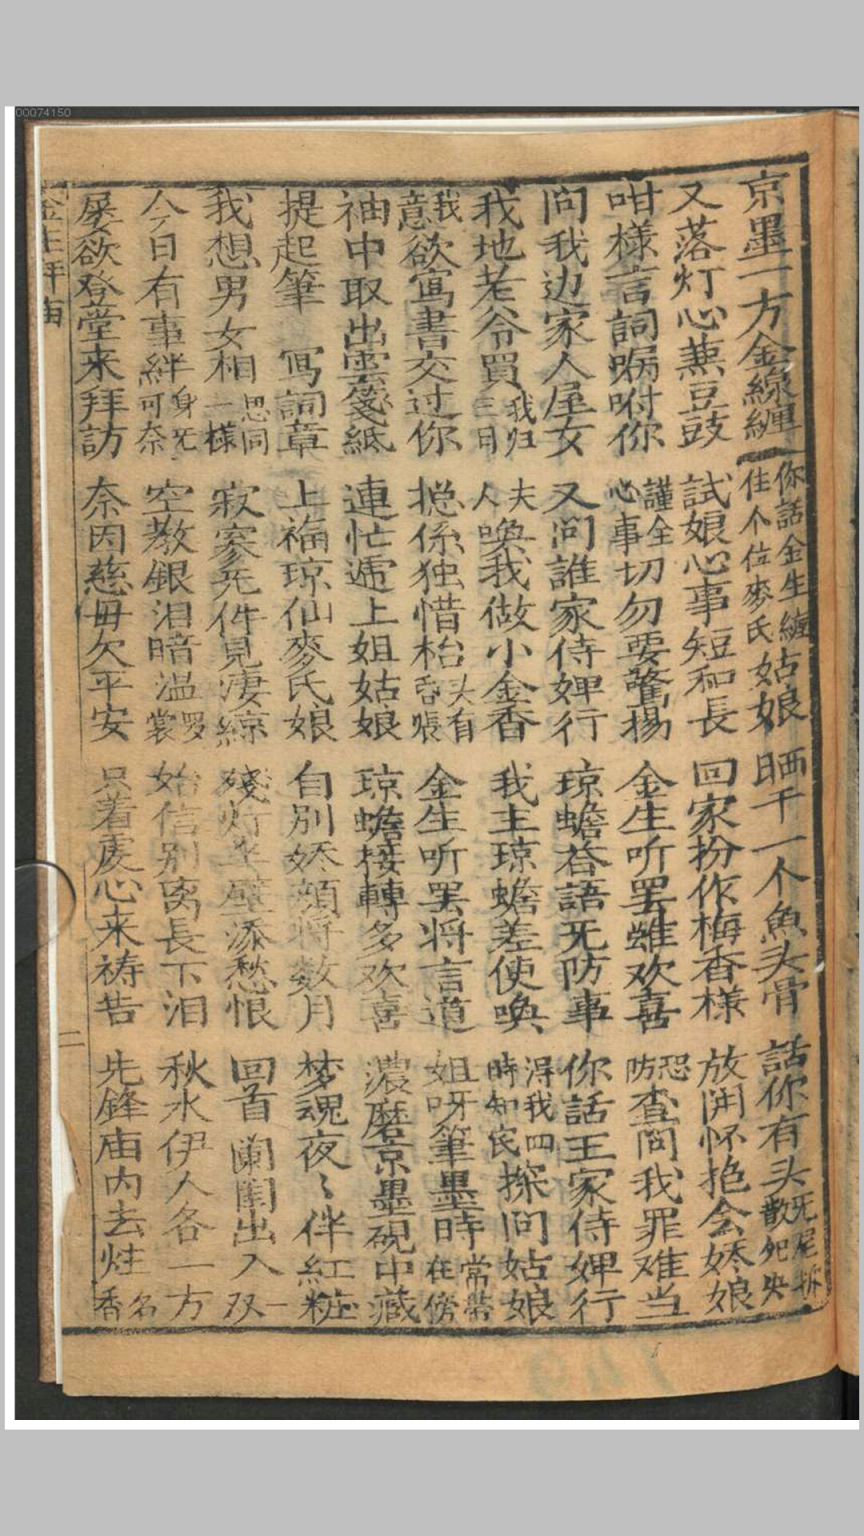 00074150
京墨一方金線纏 你話金生纏住个位麥氏姑娘 晒干一个魚头骨 話你有头无尾拆散死央
又落灯心蔴豆豉 試娘心事短和長 回家扮作梅香樣 放開怀抱会娇娘
咁樣言詞嘱咐你 謹全心事切勿要驚揚 金生听罢雖欢喜 恐防查问我罪难当
问我边家人屋女 又问誰家侍婢行 琼蟾荅語无防事 你話王家侍婢行
我地老爷買我归三日 夫人喚我做小金香 我主琼蟾差使喚 得我四時知衮探问姑娘
我意欲寫書交过你 搃係独惜枱头有呑賬 金生听罢将言道 姐呀筆墨時常帶在傍
袖中取出雲箋紙 連忙遞上姐姑娘 琼蟾接轉多欢喜 濃磨京墨硯中藏
提起筆 寫詞章 上福琼仙麥氏娘 自別娇顏将数月 梦魂夜〻伴紅粧
我想男女相思同一樣 寂寥无伴見淒緜 殘灯半壁添愁恨 回首闌闈出入双
今日有事絆身无可奈 空教銀泪暗溫罗裳 始信別离長下泪 秋水伊人各一方
屡欲登堂来拜訪 奈因慈母欠平安 只着虔心来祷告 先鋒庙内去炷名香
金生拜庙
二